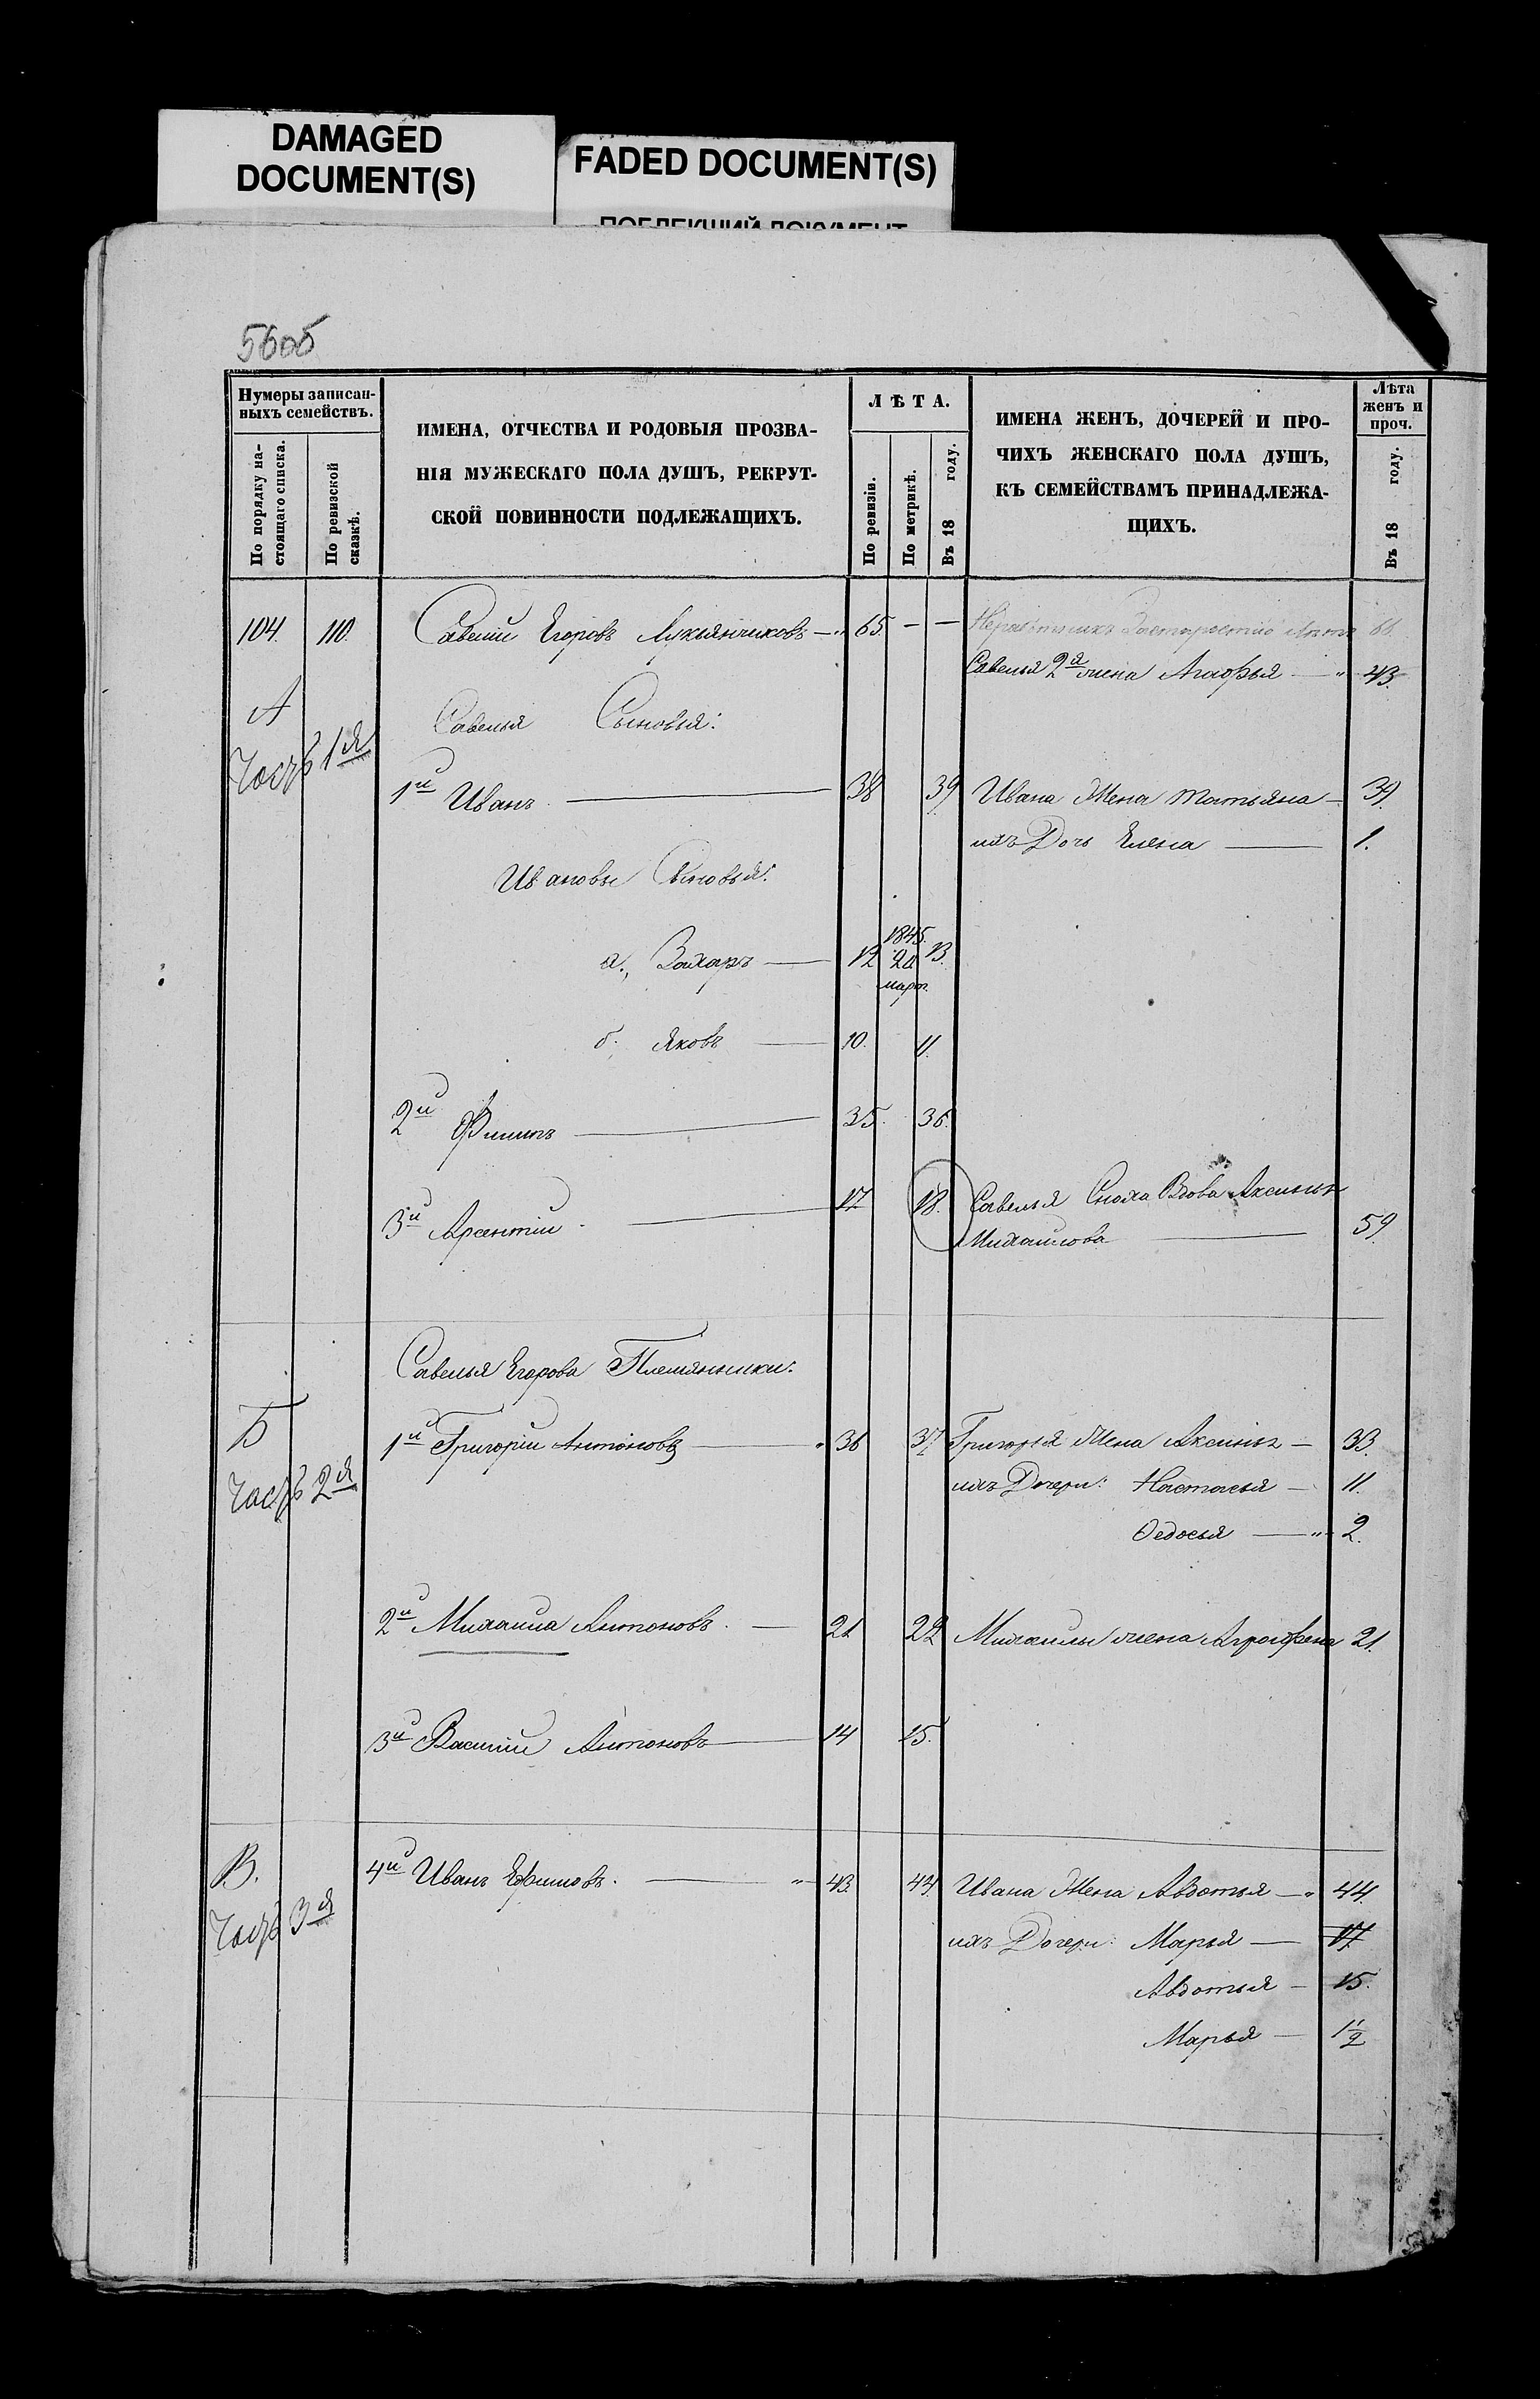 DAMAGED
DOCUMENT(S)
FADED DOCUMENT(S)
ПОБЛЕКШИЙ ДОКУМЕНТ
56об
Нумеры записан-
ныхъ семействъ.
По порядку на-
стоящаго списка.
По ревизской
сказкѣ.
ИМЕНА, ОТЧЕСТВА И РОДОВЫЯ ПРОЗВА-
НІЯ МУЖЕСКАГО ПОЛА ДУШЪ, РЕКРУТ-
СКОЙ ПОВИННОСТИ ПОДЛЕЖАЩИХЪ.
ЛѢТА.
По ревизіи.
По метрикѣ.
Въ 18 году.
ИМЕНА ЖЕНЪ, ДОЧЕРЕЙ И ПРО-
ЧИХЪ ЖЕНСКАГО ПОЛА ДУШЪ,
КЪ СЕМЕЙСТВАМЪ ПРИНАДЛЕЖА-
ЩИХЪ.
Лѣта
женъ и
проч.
Въ 18 году.
104. 110. Савелій Егоровъ Лукьянчиковъ — 65. — — 66.
Савелья 2я жена Агафья — 43.
А
Часть 1я
Савелья Сыновья:
1й Иванъ — 38 39 Ивана Жена Татьяна — 39.
ихъ Дочь Елена — 1.
Ивановы Сыновья:
а., Захаръ — 12 1845. 20 март. 13.
б. Яковъ — 10. 11.
2й Филипъ — 35. 36.
3й Арсентій — 17 18. Савелья Сноха Вдова Аксинья
Михайлова — 59.
Савелья Егорова Племянники:
Б
Часть 2я
1й Григорій Антоновъ — 36 37 Григорья Жена Аксинья — 33.
ихъ Дочери: Настасья — 11.
Ѳедосья — 2.
2й Михаила Антоновъ. — 21 22 Михаилы жена Аграфена 21.
3й Василій Антоновъ — 14 15.
В.
Часть 3я
4й Иванъ Ефимовъ. — 43. 44. Ивана Жена Авдотья — 44.
ихъ Дочери: Марья — 17.
Авдотья — 15.
Марья — 1 1/2